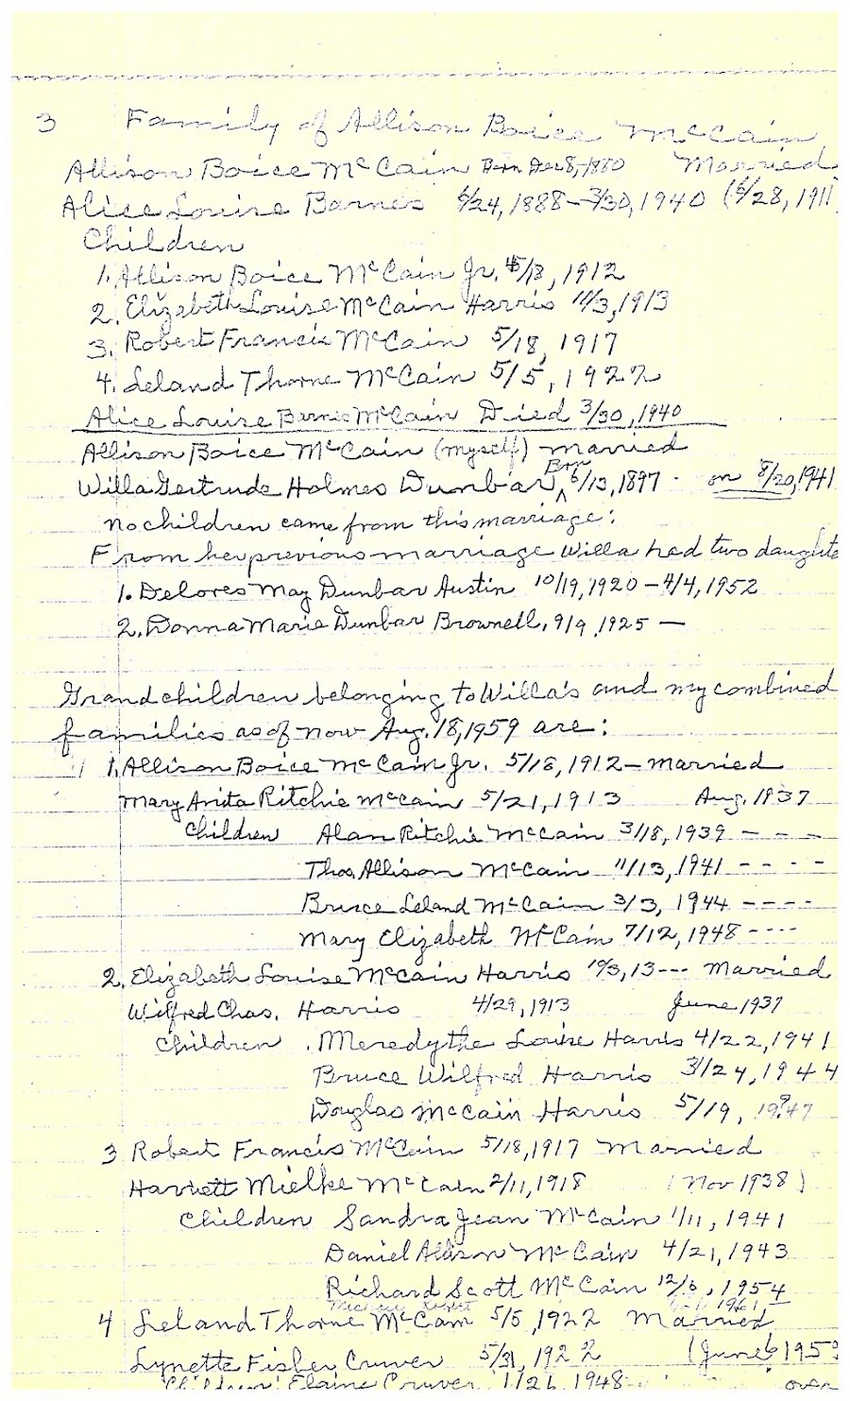 3 Family of Allison Boice McCain
Allison Boice McCain Born Dec 8, 1880 Married
Alice Louise Barnes 6/24, 1888 - 3/30, 1940 (6/28, 1911
Children
1. Allison Boice McCain Jr. 5/18, 1912
2. Elizabeth Louise McCain Harris 11/3, 1913
3. Robert Francis McCain 5/18, 1917
4. Leland Thorne McCain 5/5, 1922
Alice Louise Barnes McCain Died 3/30, 1940
Allison Boice McCain (myself) married
Willa Gertrude Holmes Dunbar Born 6/13, 1897 - on 8/20, 1941
No children came from this marriage.
From her previous marriage Willa had two daughte
1. Delores May Dunbar Austin 10/19, 1920 - 4/4, 1952
2. Donna Marie Dunbar Brownell, 9/9, 1925 —
Grandchildren belonging to Willa's and my combined
families as of now Aug. 18, 1959 are:
1. Allison Boice McCain Jr. 5/18, 1912 - married
Mary Anita Ritchie McCain 5/21, 1913 Aug. 1937
Children Alan Ritchie McCain 3/18, 1939 - - -
Thos. Allison McCain 11/13, 1941 - - - -
Bruce Leland McCain 3/3, 1944 - - - -
Mary Elizabeth McCain 7/12, 1948 - - - -
2. Elizabeth Louise McCain Harris 3, 13 - - - Married
Wilfred Chas. Harris 4/29, 1913 June 1937
Children Meredythe Louise Harris 4/22, 1941
Bruce Wilfred Harris 3/24, 1944
Douglas McCain Harris 5/19, 1947
3 Robert Francis McCain 5/18, 1917 Married
Harriett Mielke McCain 2/11, 1918 (Nov 1938)
Children Sandra Jean McCain 1/11, 1941
Daniel Allison McCain 4/21, 1943
Richard Scott McCain 12/6, 1954
Michael Robert 1961
4 Leland Thorne McCain 5/5, 1922 Married
Lynette Fisher Cruver 5/31, 1922 (June 6 195
Children: Elaine Cruver 1/26, 1948 over